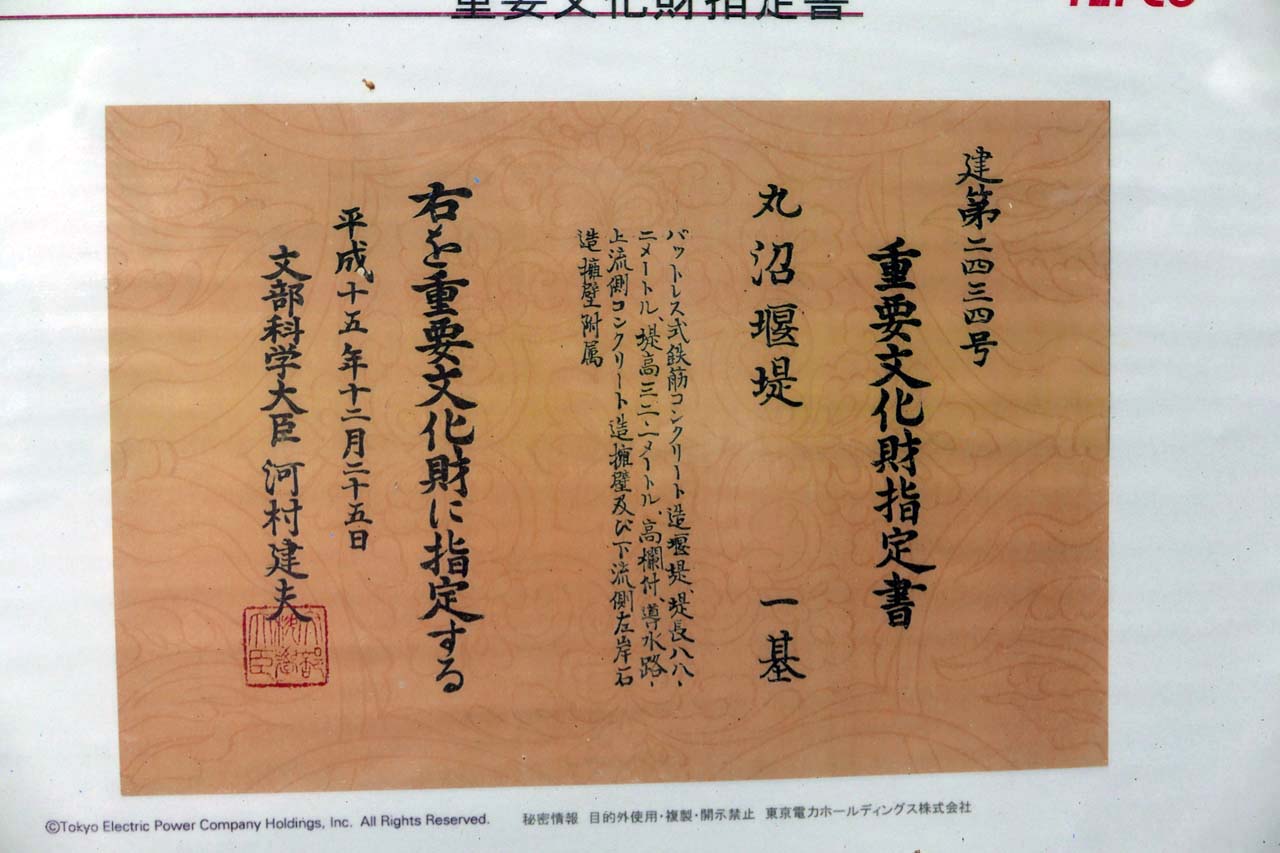 重要文化財指定書
TEPCO
建第二四三四号
重要文化財指定書
丸沼堰堤 一基
バットレス式鉄筋コンクリート造堰堤、堤長八八・
二メートル、堤高三二・一メートル、高欄付、導水路・
上流側コンクリート造擁壁及び下流側左岸石
造擁壁附属
右を重要文化財に指定する
平成十五年十二月二十五日
文部科学大臣 河村建夫
©Tokyo Electric Power Company Holdings, Inc. All Rights Reserved. 秘密情報 目的外使用・複製・開示禁止 東京電力ホールディングス株式会社